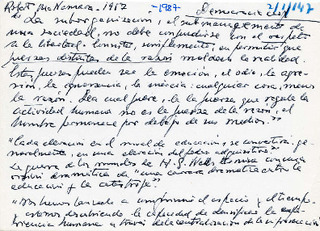 Robert McNamara, 1967 -1987 democracia 2/1/147
"La suborganización, el submanagement de
una sociedad, no debe confundirse con el respeto
a la libertad: consiste, simplemente, en permitir que
fuerzas distintas de la razón moldeen la realidad.
Estas fuerzas pueden ser la emoción, el odio, la agre-
sión, la ignorancia, la inercia: cualquier cosa, menos
la razón. Sea cual fuere, si la fuerza que regula la
actividad humana no es la fuerza de la razón, el
hombre permanece por debajo de sus medios."
"Cada elevación en el nivel de educación, se convertirá, ge-
neralmente, en una elevación del poder adquisitivo"
la guerra de los mundos de H. G. Wells
visión dramática de "una carrera dramática entre la
educación y la catástrofe"
"Nos hemos lanzado a uniformar el espacio y el tiempo
estamos descubriendo la capacidad de la
humana a través de la centralización de la producción